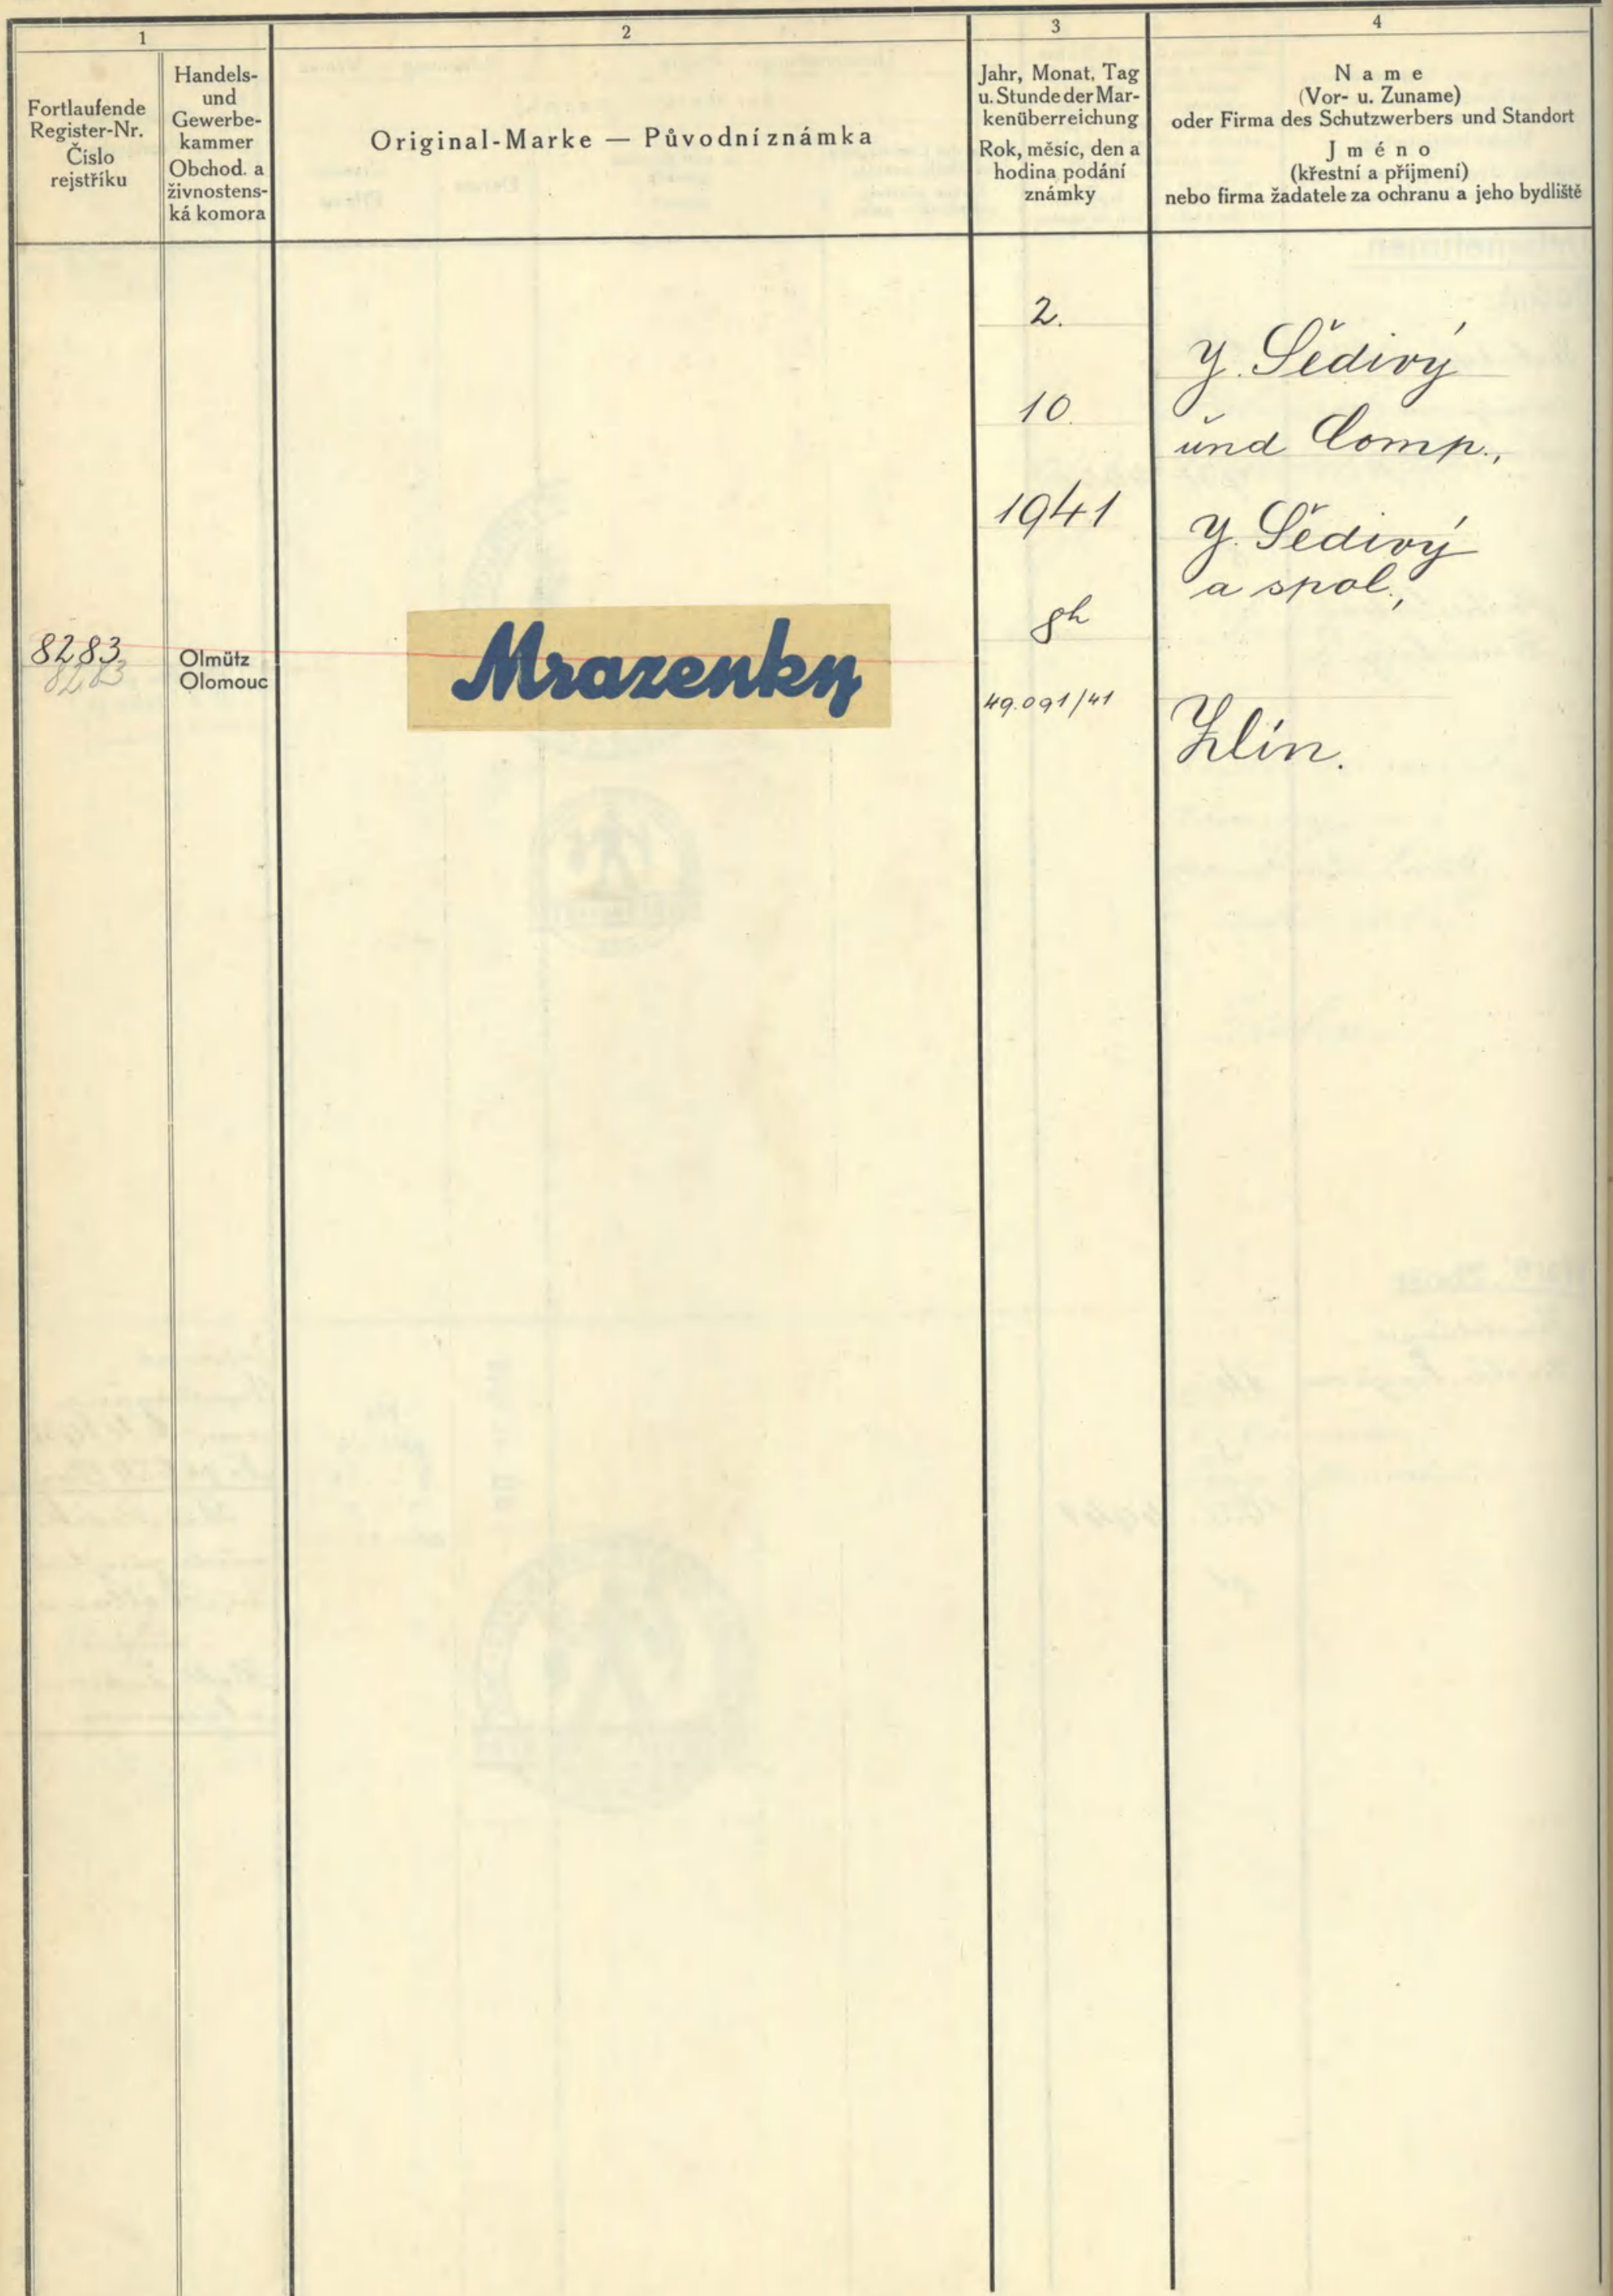 1
Fortlaufende
Register-Nr.
Číslo
rejstříku
Handels-
und
Gewerbe-
kammer
Obchod. a
živnostens-
ká komora
2
Original-Marke — Původní známka
3
Jahr, Monat, Tag
u. Stunde der Mar-
kenüberreichung
Rok, měsíc, den a
hodina podání
známky
4
Name
(Vor- u. Zuname)
oder Firma des Schutzwerbers und Standort
Jméno
(křestní a příjmení)
nebo firma žadatele za ochranu a jeho bydliště
8283
8283
Olmütz
Olomouc
Mrazenky
2.
10.
1941
8h
49.091/41
J. Šedivý
und Comp.,
J. Šedivý
a spol.,
Zlín.